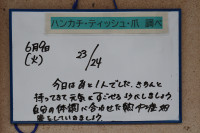 ハンカチ・ティッシュ・爪 調べ
6月9日
(火)
23/24
今日はあと1人でした。きちんと
持ってきて元気にすごせるようにしましょう。
自分の体調に合わせた
をしていきましょう